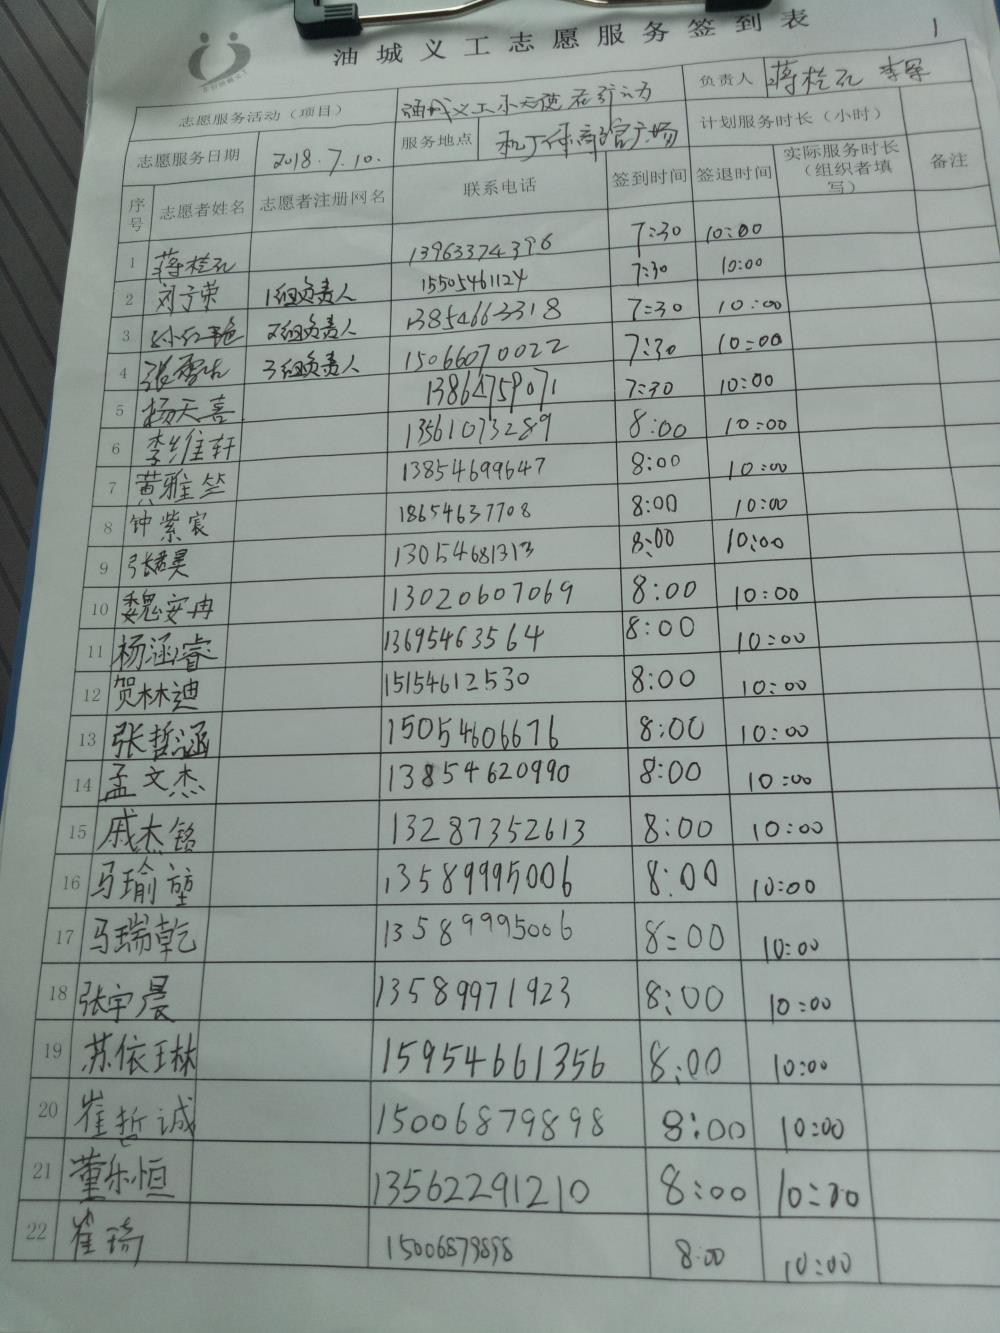 油城义工志愿服务签到表
1
志愿服务活动（项目） 油城义工小天使在行动 负责人 蒋桂孔 李军
志愿服务日期 2018.7.10. 服务地点 计划服务时长（小时）
序号 志愿者姓名 志愿者注册网名 联系电话 签到时间 签退时间 实际服务时长（组织者填写） 备注
1 蒋桂孔 13963374396 7:30 10:00
2 刘子荣 1组负责人 15505461124 7:30 10:00
3 孙红艳 2组负责人 13854663318 7:30 10:00
4 3组负责人 15066070022 7:30 10:00
5 杨天喜 13864759071 7:30 10:00
6 李维轩 13561073289 8:00 10:00
7 黄雅竺 13854699647 8:00 10:00
8 钟紫宸 18654637708 8:00 10:00
9 张君昊 13054681313 8:00 10:00
10 魏安冉 13020607069 8:00 10:00
11 杨涵睿 13695463564 8:00 10:00
12 贺林迪 15154612530 8:00 10:00
13 张哲涵 15054606676 8:00 10:00
14 孟文杰 13854620990 8:00 10:00
15 戚杰铭 13287352613 8:00 10:00
16 马瑜堃 13589995006 8:00 10:00
17 马瑞乾 13589995006 8:00 10:00
18 张宇晨 13589971923 8:00 10:00
19 苏依琳 15954661356 8:00 10:00
20 崔哲诚 15006879898 8:00 10:00
21 董乐恒 13562291210 8:00 10:00
22 崔琦 15006879898 8:00 10:00